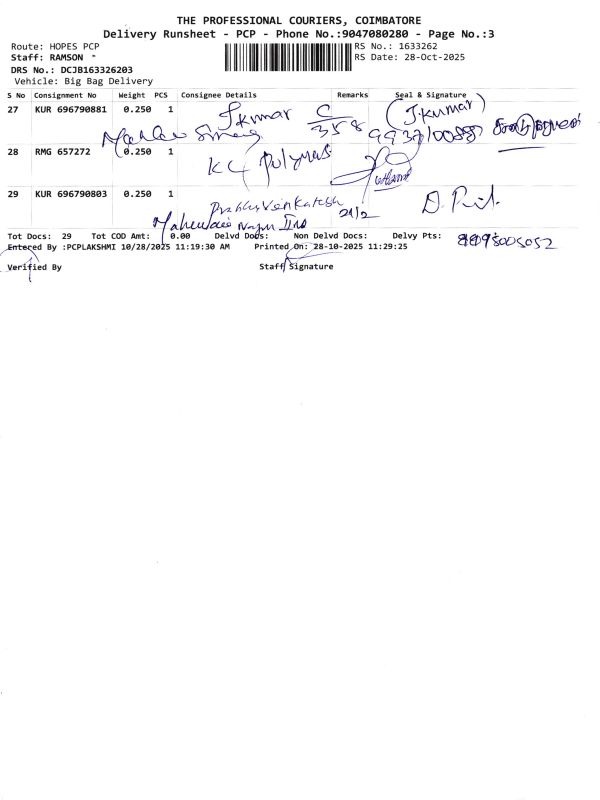 THE PROFESSIONAL COURIERS, COIMBATORE
Delivery Runsheet - PCP - Phone No.:9047080280 - Page No.:3
Route: HOPES PCP RS No.: 1633262
Staff: RAMSON - RS Date: 28-Oct-2025
DRS No.: DCJB163326203
Vehicle: Big Bag Delivery
S No Consignment No Weight PCS Consignee Details Remarks Seal & Signature
27 KUR 696790881 0.250 1 J.kumar C/358 (J.kumar)
28 RMG 657272 0.250 1 KC Polymers
29 KUR 696790803 0.250 1 Prabhu Venkatesh 21/2
Nagar
Tot Docs: 29 Tot COD Amt: 0.00 Delvd Docs: Non Delvd Docs: Delvy Pts:
Entered By :PCPLAKSHMI 10/28/2025 11:19:30 AM Printed On: 28-10-2025 11:29:25
Verified By Staff Signature